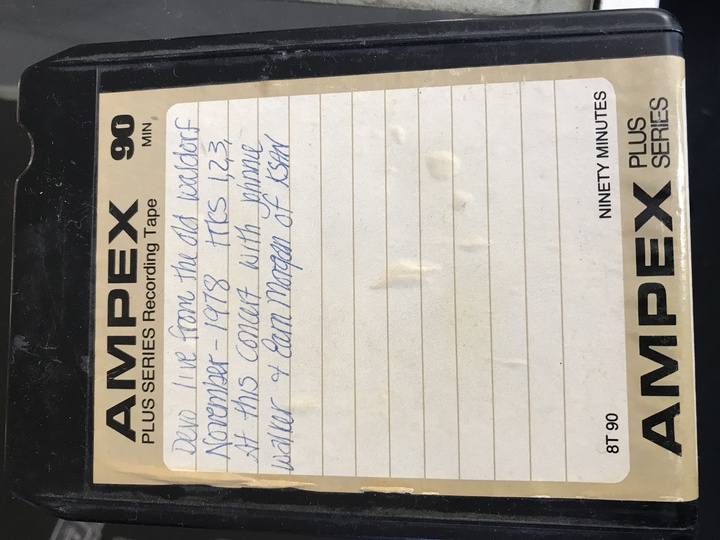 AMPEX 90
PLUS SERIES Recording Tape MIN
Devo live from the old waldorf
November - 1978 TRKS 1,2,3,
At this concert with phone
walker & Earn Morgan of KSAN
8T 90 NINETY MINUTES
AMPEX PLUS
SERIES